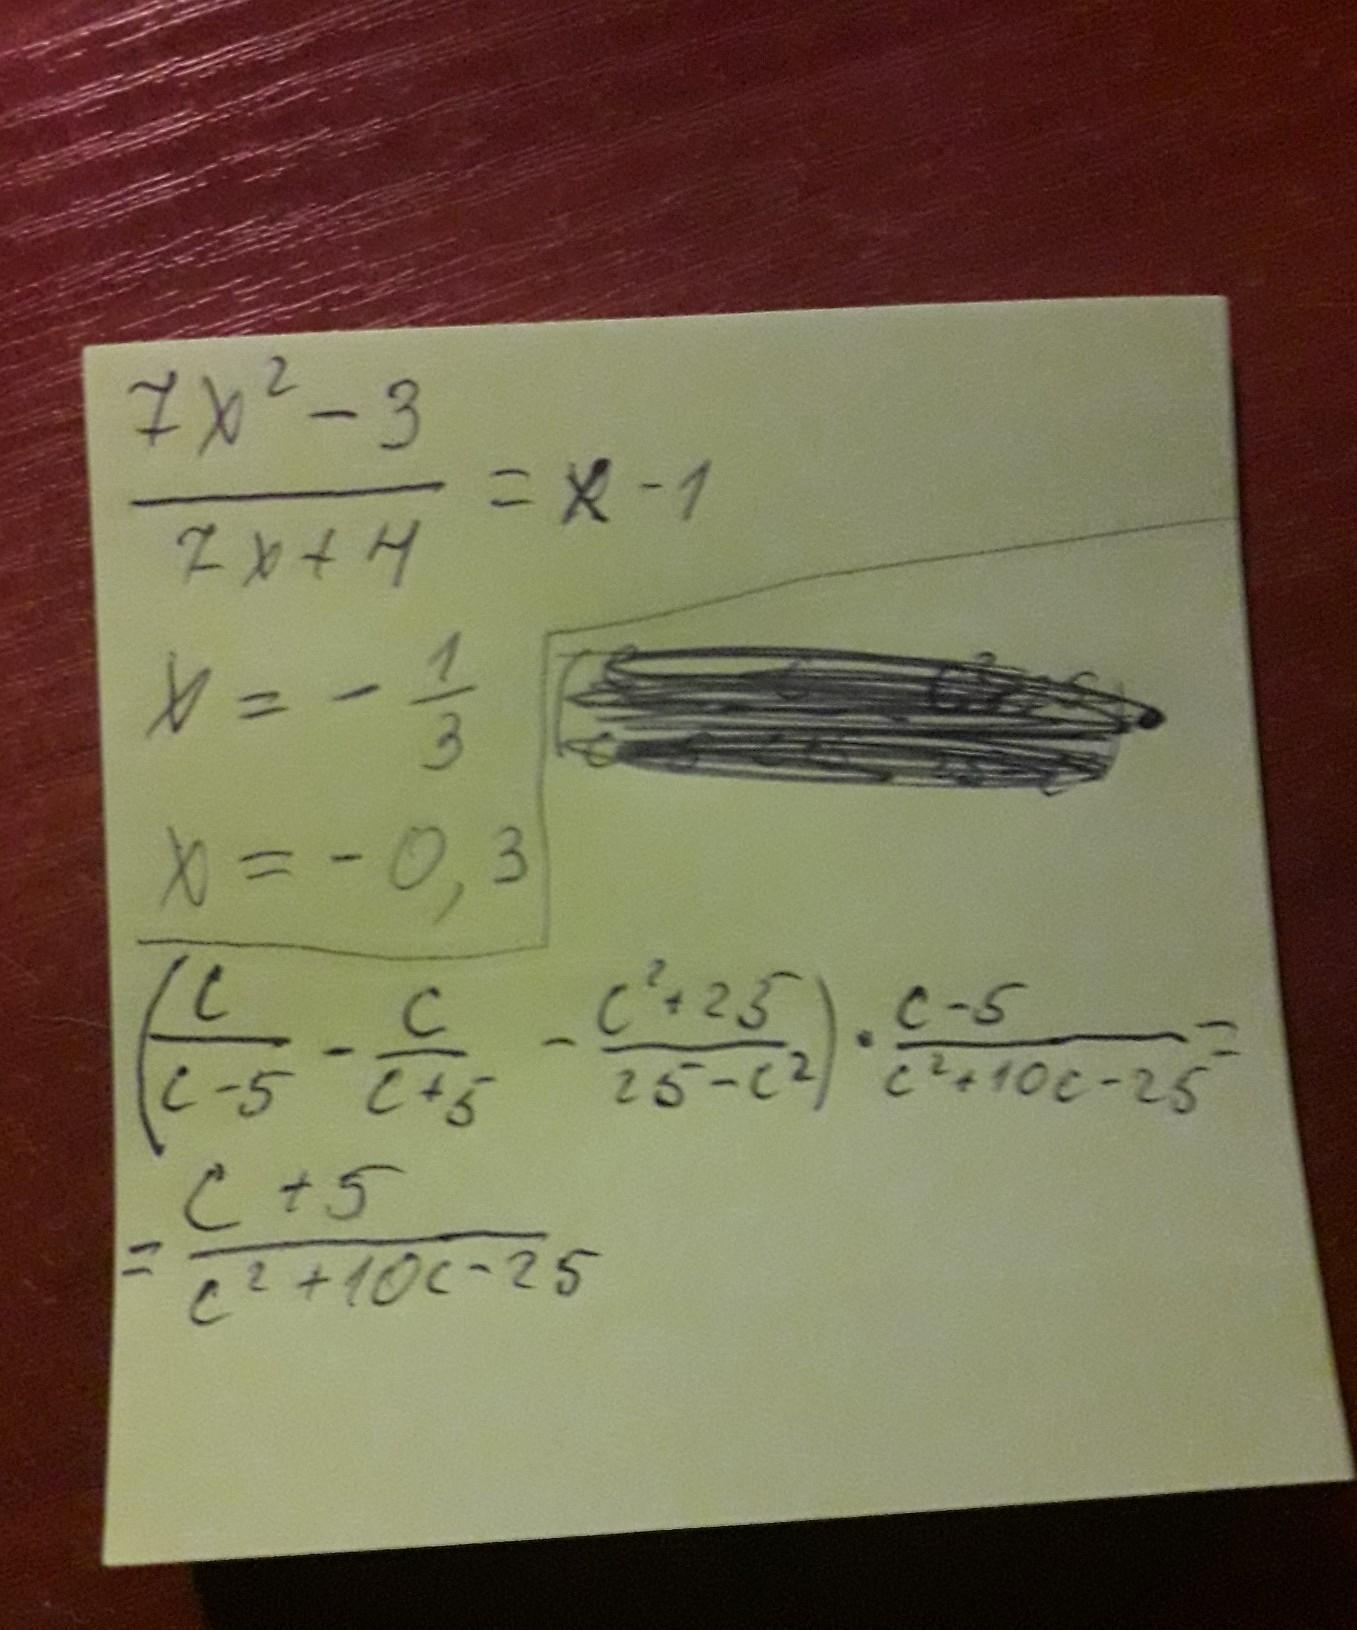 7x² - 3
/ 7x + 4 = x - 1
x = - 1/3
x = - 0,3
(c/(c-5) - c/(c+5) - (c²+25)/(25-c²)) · (c-5)/(c²+10c-25) =
= (c+5)/(c²+10c-25)